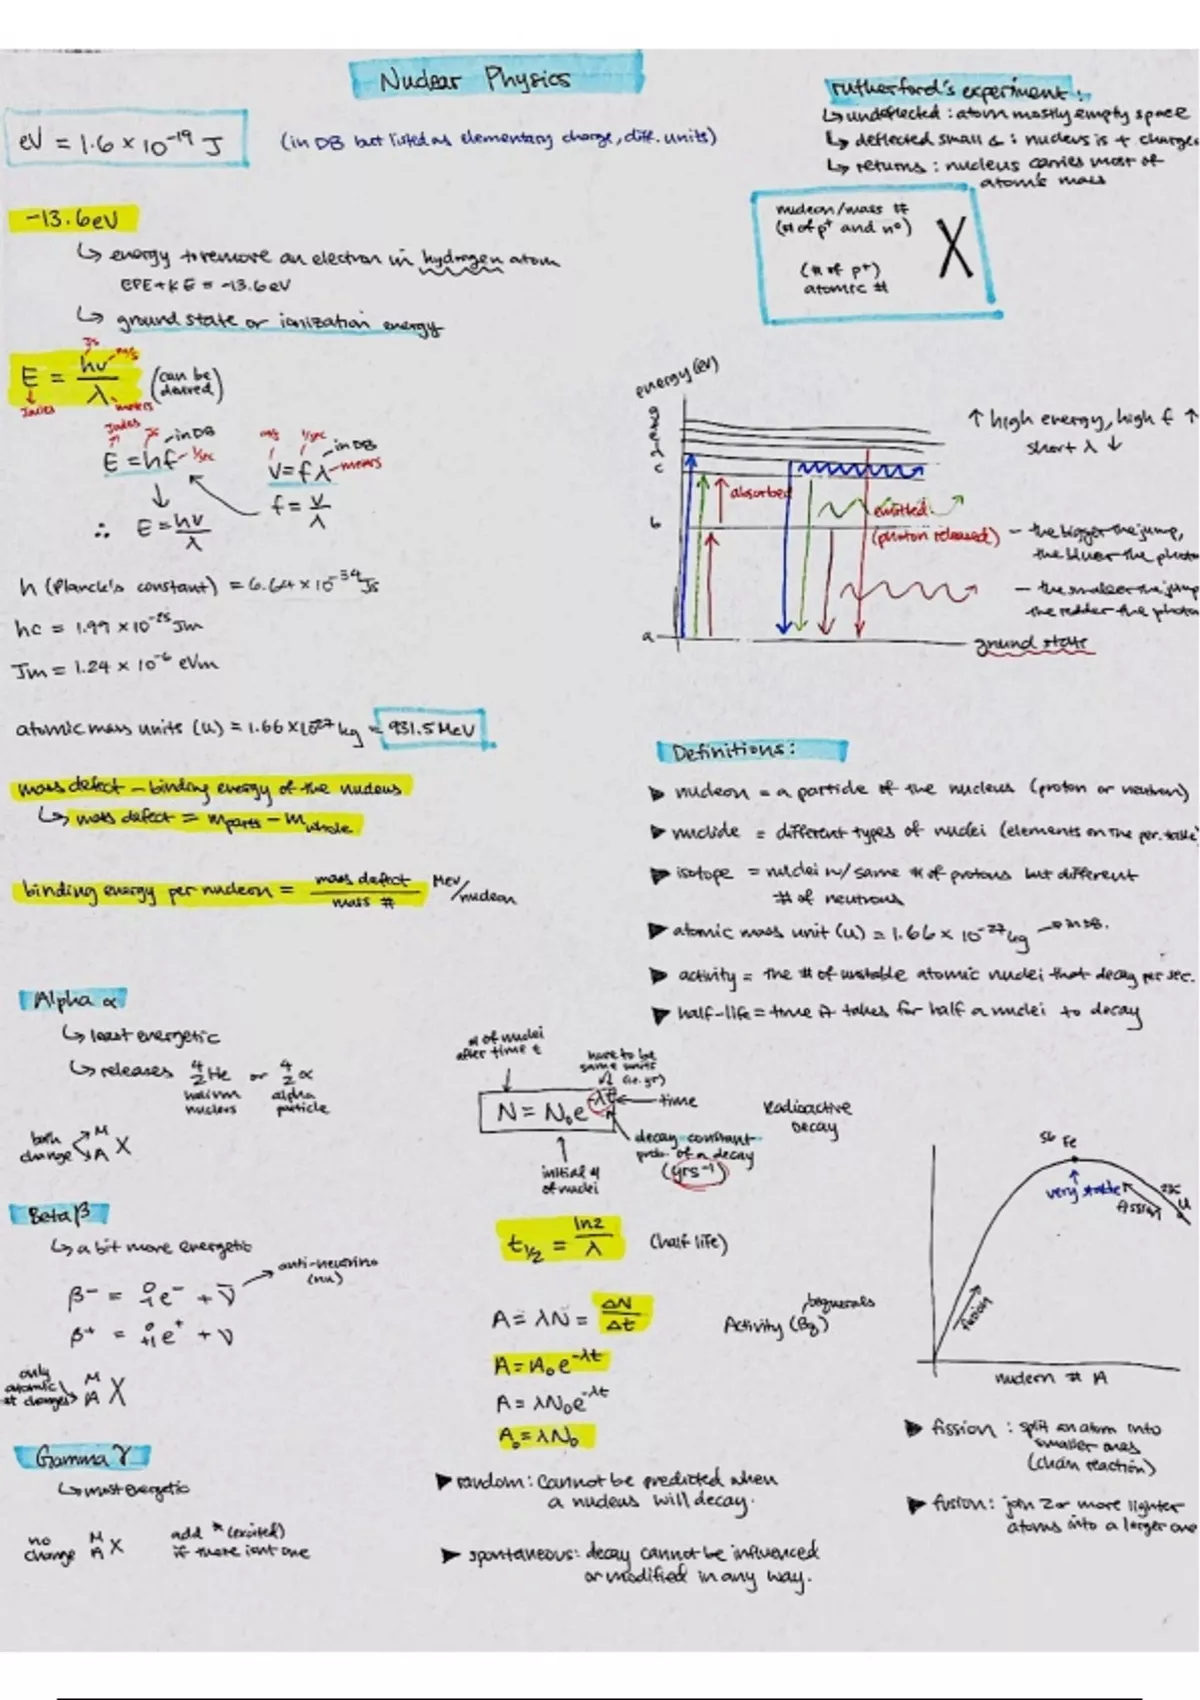 Nuclear Physics
eV = 1.6 × 10⁻¹⁹ J
(in DB but listed as elementary charge, diff. units)
rutherford's experiment:
↳ undeflected : atom mostly empty space
↳ deflected small ∠ : nucleus is + charge
↳ returns : nucleus carries most of
atom's mass
nucleon/mass #
(# of p⁺ and n⁰)
(# of p⁺)
atomic #
X
-13.6eV
↳ energy to remove an electron in hydrogen atom
EPE + KE = -13.6eV
↳ ground state or ionization energy
Js m/s
E = hv/λ (can be derived)
Joules meters
Joules Js in DB
E = hf 1/sec
m/s 1/sec in DB
v = fλ meters
f = v/λ
∴ E = hv/λ
h (Planck's constant) = 6.64 × 10⁻³⁴ Js
hc = 1.99 × 10⁻²⁵ Jm
Jm = 1.24 × 10⁻⁶ eVm
atomic mass units (u) = 1.66 × 10⁻²⁷ kg = 931.5 MeV
mass defect - binding energy of the nucleus
↳ mass defect = m parts - m whole
binding energy per nucleon = mass defect / mass # MeV/nucleon
energy (eV)
c
b
a
absorbed
emitted
(photon released)
ground state
↑ high energy, high f ↑
short λ ↓
- the bigger the jump,
the bluer the photo
- the smaller the jump
the redder the photo
Definitions:
▶ nucleon = a particle of the nucleus (proton or neutron)
▶ nuclide = different types of nuclei (elements on the per. table
▶ isotope = nuclei w/ same # of protons but different
# of neutrons
▶ atomic mass unit (u) = 1.66 × 10⁻²⁷ kg → in DB.
▶ activity = the # of unstable atomic nuclei that decay per sec.
▶ half-life = time it takes for half a nuclei to decay
Alpha α
↳ least energetic
↳ releases ⁴₂He or ⁴₂α
helium nucleus
alpha particle
both change
M
A X
Beta β
↳ a bit more energetic
β⁻ = ⁰₋₁e⁻ + ν̄
anti-neutrino
(nu)
β⁺ = ⁰₊₁e⁺ + ν
only
atomic
# changes
M
A X
Gamma γ
↳ most energetic
no
change
M
A X
add * (excited)
if there isnt one
# of nuclei
after time t
have to be
same units
(i.e. yr)
N = N₀e^-λt
time
initial #
of nuclei
decay constant
prob. of a decay
(yrs⁻¹)
Radioactive
Decay
t₁/₂ = ln2/λ (half life)
A = λN = ΔN/Δt
Activity (Bq)
bequerals
A = A₀e^-λt
A = λN₀e^-λt
A₀ = λN₀
▶ random: Cannot be predicted when
a nucleus will decay.
▶ spontaneous: decay cannot be influenced
or modified in any way.
56 Fe
very stable
fission
235 U
fusion
nucleon # A
▶ fission : split an atom into
smaller ones
(chain reaction)
▶ fusion: join 2 or more lighter
atoms into a larger one